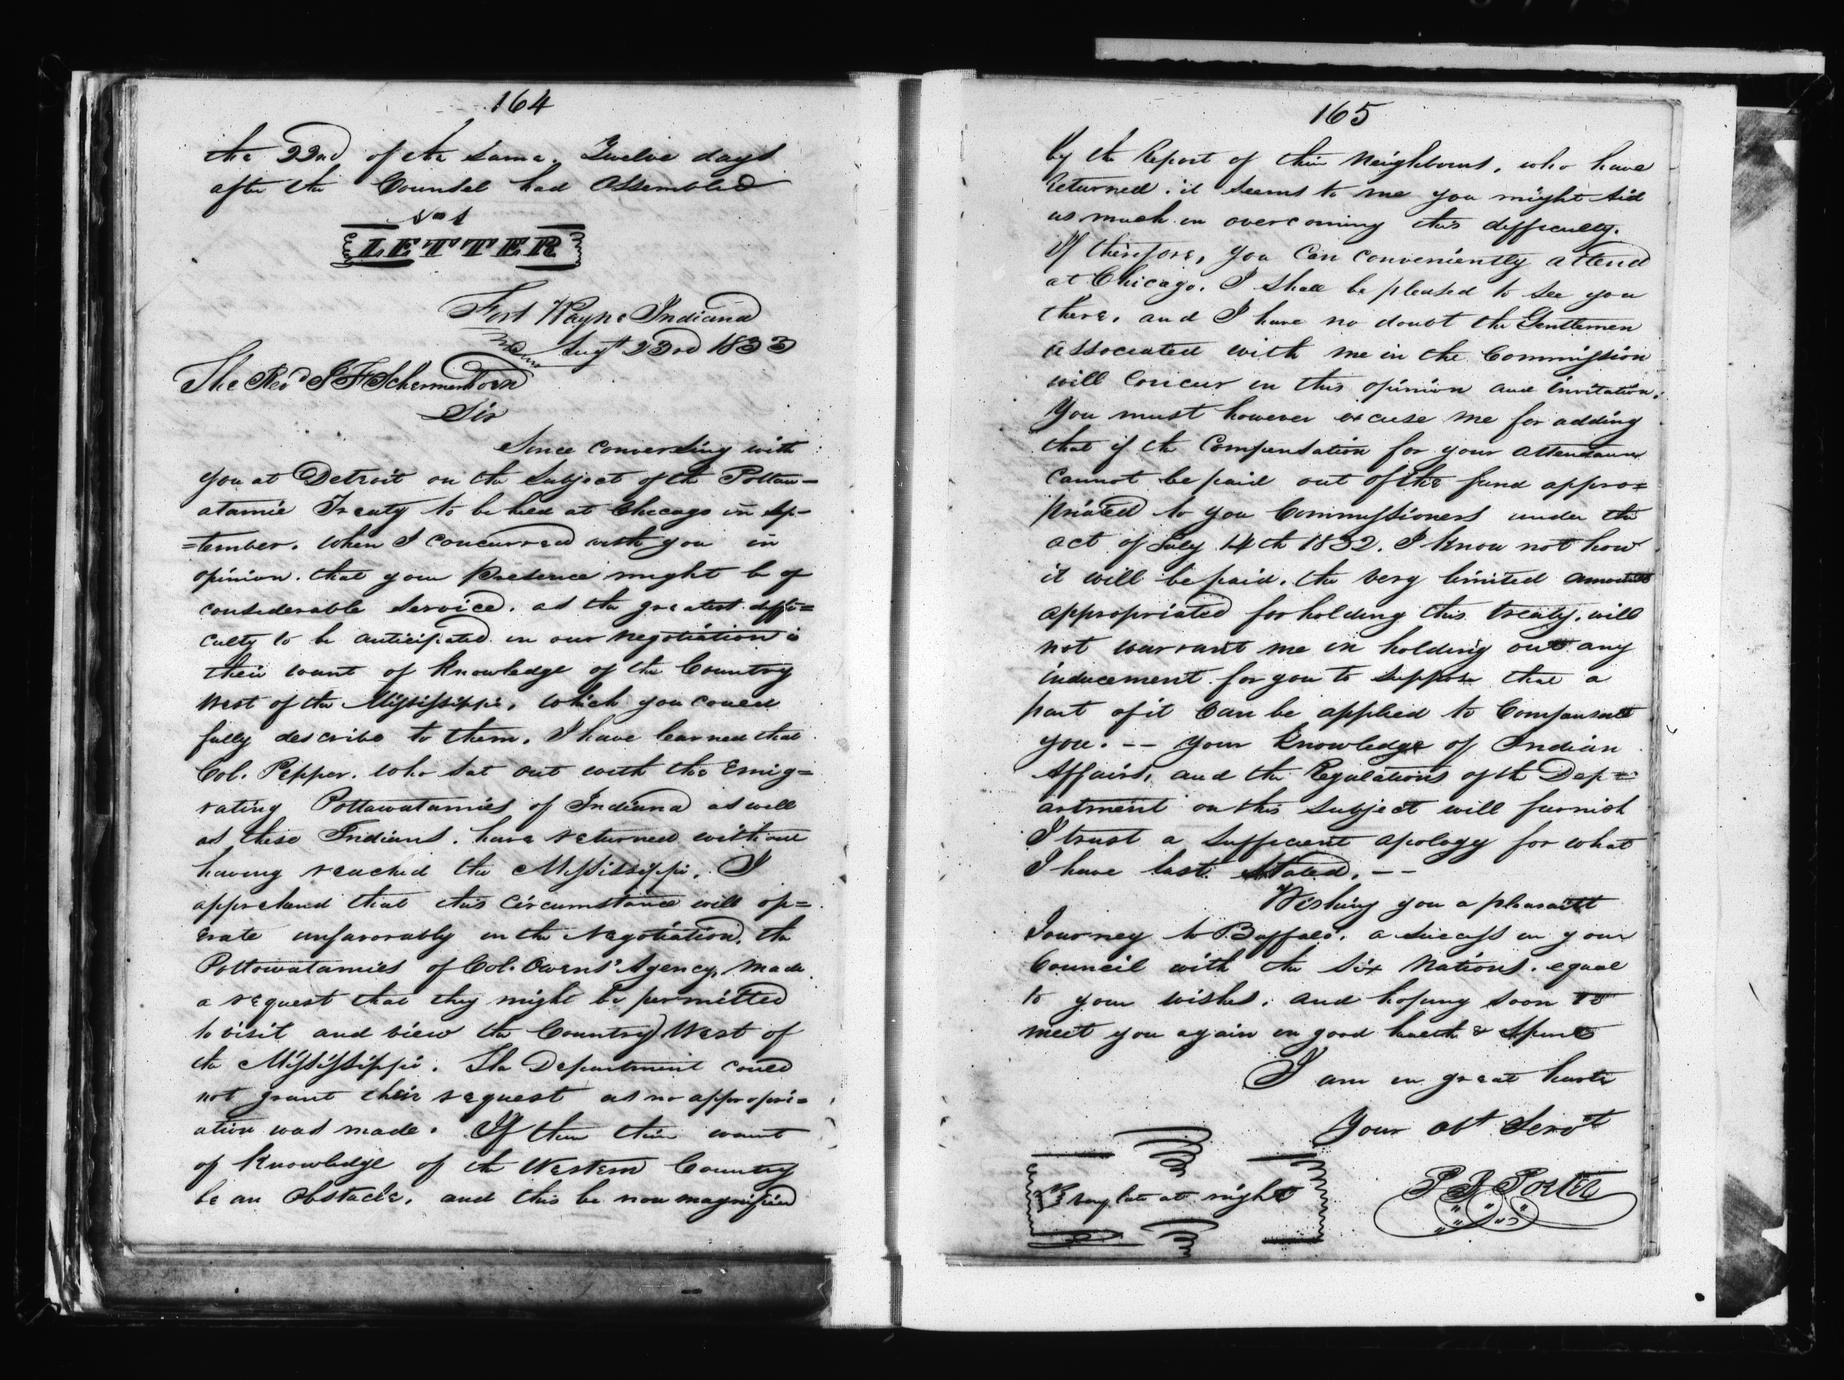 164
the 22nd of the same. Twelve days
after the Counsel had assembled
No 1
LETTER
Fort Wayne Indiana
Augt 23rd 1833
The Revd J F Schermerhorn
Sir
Since conversing with
you at Detroit on the subject of the Pottaw-
atamie Treaty to be held at Chicago in Sep-
=tember. When I concurred with you in
opinion. that your Presence might be of
considerable service. as the greatest diffi=
culty to be anticipated in our negotiation is
their want of knowledge of the Country
West of the Mississippi, which you could
fully describe to them. I have learned that
Col. Pepper. who sat out with the Emig=
rating Pottawatamies of Indiana as well
as these Indians. have returned without
having reached the Mississippi. I
apprehend that this circumstance will op=
erate unfavorably in the Negotiation. the
Pottowatamies of Col. Owens' Agency, made
a request that they might be permitted
to visit and view the Country West of
the Mississippi. The Department could
not grant their request as no appropri=
ation was made. If then their want
of knowledge of the Western Country
be an Obstacle. and this be now magnified
165
by the Report of their Neighbours, who have
returned. it seems to me you might aid
us much in overcoming this difficulty.
If therefore, you can conveniently attend
at Chicago. I shall be pleased to see you
there. and I have no doubt the Gentlemen
associated with me in the Commission
will concur in this opinion and invitation.
You must however excuse me for adding
that if the Compensation for your attendance
cannot be paid out of the fund appro=
priated to you Commissioners under the
act of July 14th 1832. I know not how
it will be paid. the very limited amount
appropriated for holding this treaty. will
not warrant me in holding out any
inducement for you to suppose that a
part of it can be applied to Compensate
you. -- Your knowledge of Indian
Affairs, and the Regulations of the Dep=
artment on this subject will furnish
I trust a sufficient apology for what
I have last stated. --
Wishing you a pleasant
Journey to Buffalo. a success in your
Council with the Six Nations. equal
to your wishes. and hoping soon to
meet you again in good health &
I am in great haste
Your obt Servt
late at night
P B Porter